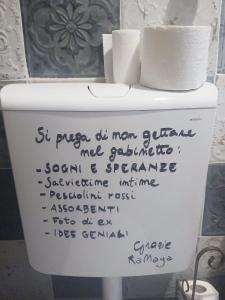 Si prega di non gettare
nel gabinetto:
- SOGNI E SPERANZE
- Salviettine intime
- Pesciolini rossi
- ASSORBENTI
- Foto di ex
- IDEE GENIALI
Grazie
RaMaya